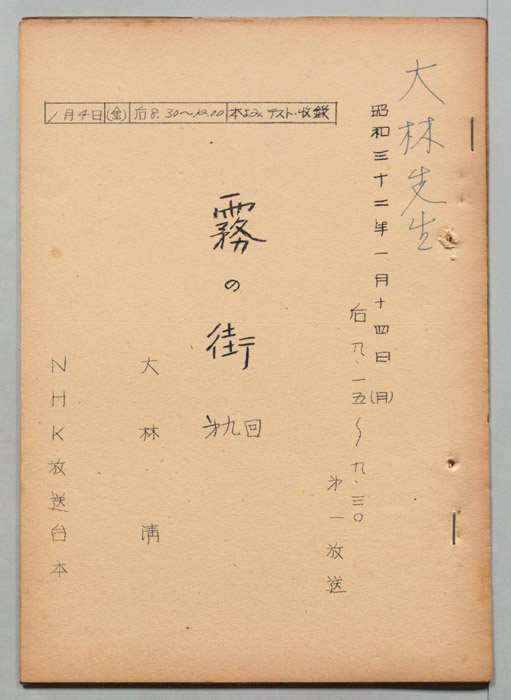 大林先生
昭和三十二年一月十四日(月)
后九.一五〜九.三〇
㐧一放送
1月4日(金)后8.30〜12.00 本よみ テスト・收録
霧の街
㐧九回
大林清
NHK放送台本